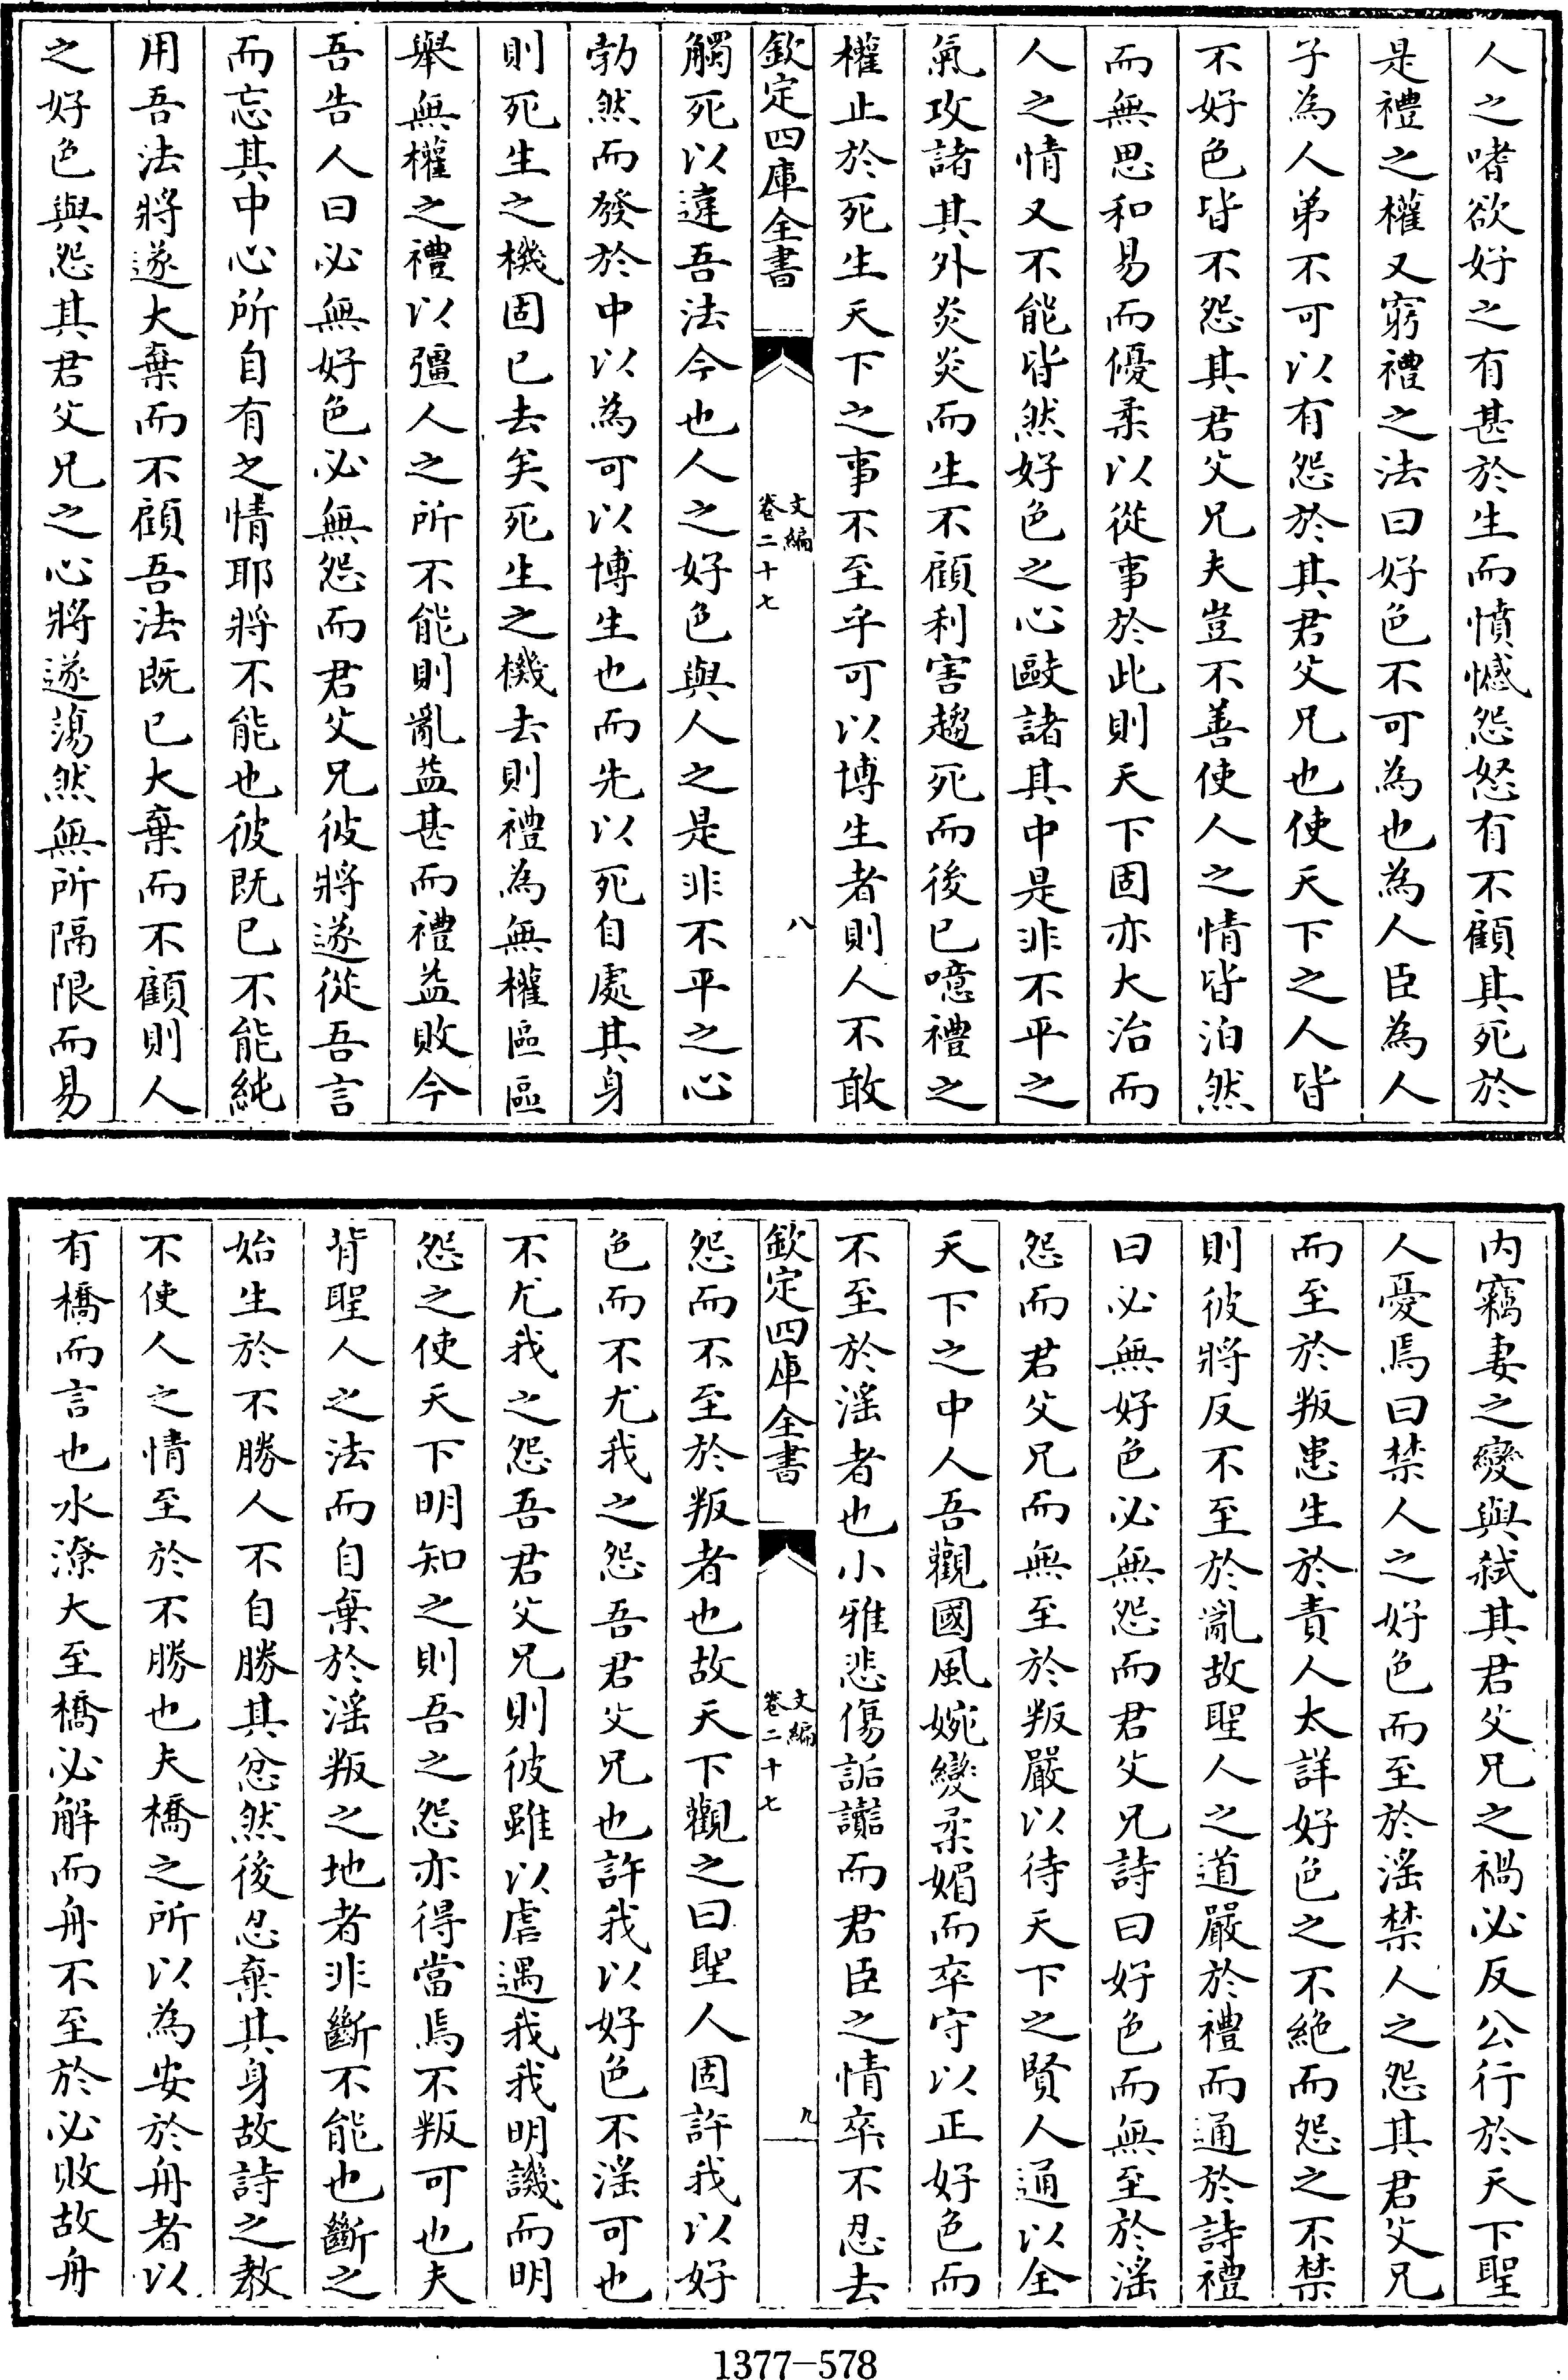 人之嗜欲好之有甚於生而憤憾怨怒有不顧其死於
是禮之權又窮禮之法曰好色不可為也為人臣為人
子為人弟不可以有怨於其君父兄也使天下之人皆
不好色皆不怨其君父兄夫豈不善使人之情皆泊然
而無思和易而優柔以從事於此則天下固亦大治而
人之情又不能皆然好色之心敺諸其中是非不平之
氣攻諸其外炎炎而生不顧利害趨死而後已噫禮之
權止於死生天下之事不至乎可以博生者則人不敢
欽定四庫全書
文編
卷二十七
八
觸死以違吾法今也人之好色與人之是非不平之心
勃然而發於中以為可以博生也而先以死自處其身
則死生之機固已去矣死生之機去則禮為無權區區
舉無權之禮以彊人之所不能則亂益甚而禮益敗今
吾告人曰必無好色必無怨而君父兄彼將遂從吾言
而忘其中心所自有之情耶將不能也彼既已不能純
用吾法將遂大棄而不顧吾法既已大棄而不顧則人
之好色與怨其君父兄之心將遂蕩然無所隔限而易
內竊妻之變與弑其君父兄之禍必反公行於天下聖
人憂焉曰禁人之好色而至於淫禁人之怨其君父兄
而至於叛患生於責人太詳好色之不絕而怨之不禁
則彼將反不至於亂故聖人之道嚴於禮而通於詩禮
曰必無好色必無怨而君父兄詩曰好色而無至於淫
怨而君父兄而無至於叛嚴以待天下之賢人通以全
天下之中人吾觀國風婉孌柔媚而卒守以正好色而
不至於淫者也小雅悲傷詬讟而君臣之情卒不忍去
欽定四庫全書
文編
卷二十七
九
怨而不至於叛者也故天下觀之曰聖人固許我以好
色而不尤我之怨吾君父兄也許我以好色不淫可也
不尤我之怨吾君父兄則彼雖以虐遇我我明譏而明
怨之使天下明知之則吾之怨亦得當焉不叛可也夫
背聖人之法而自棄於淫叛之地者非斷不能也斷之
始生於不勝人不自勝其忿然後忍棄其身故詩之教
不使人之情至於不勝也夫橋之所以為安於舟者以
有橋而言也水潦大至橋必解而舟不至於必敗故舟
1377-578